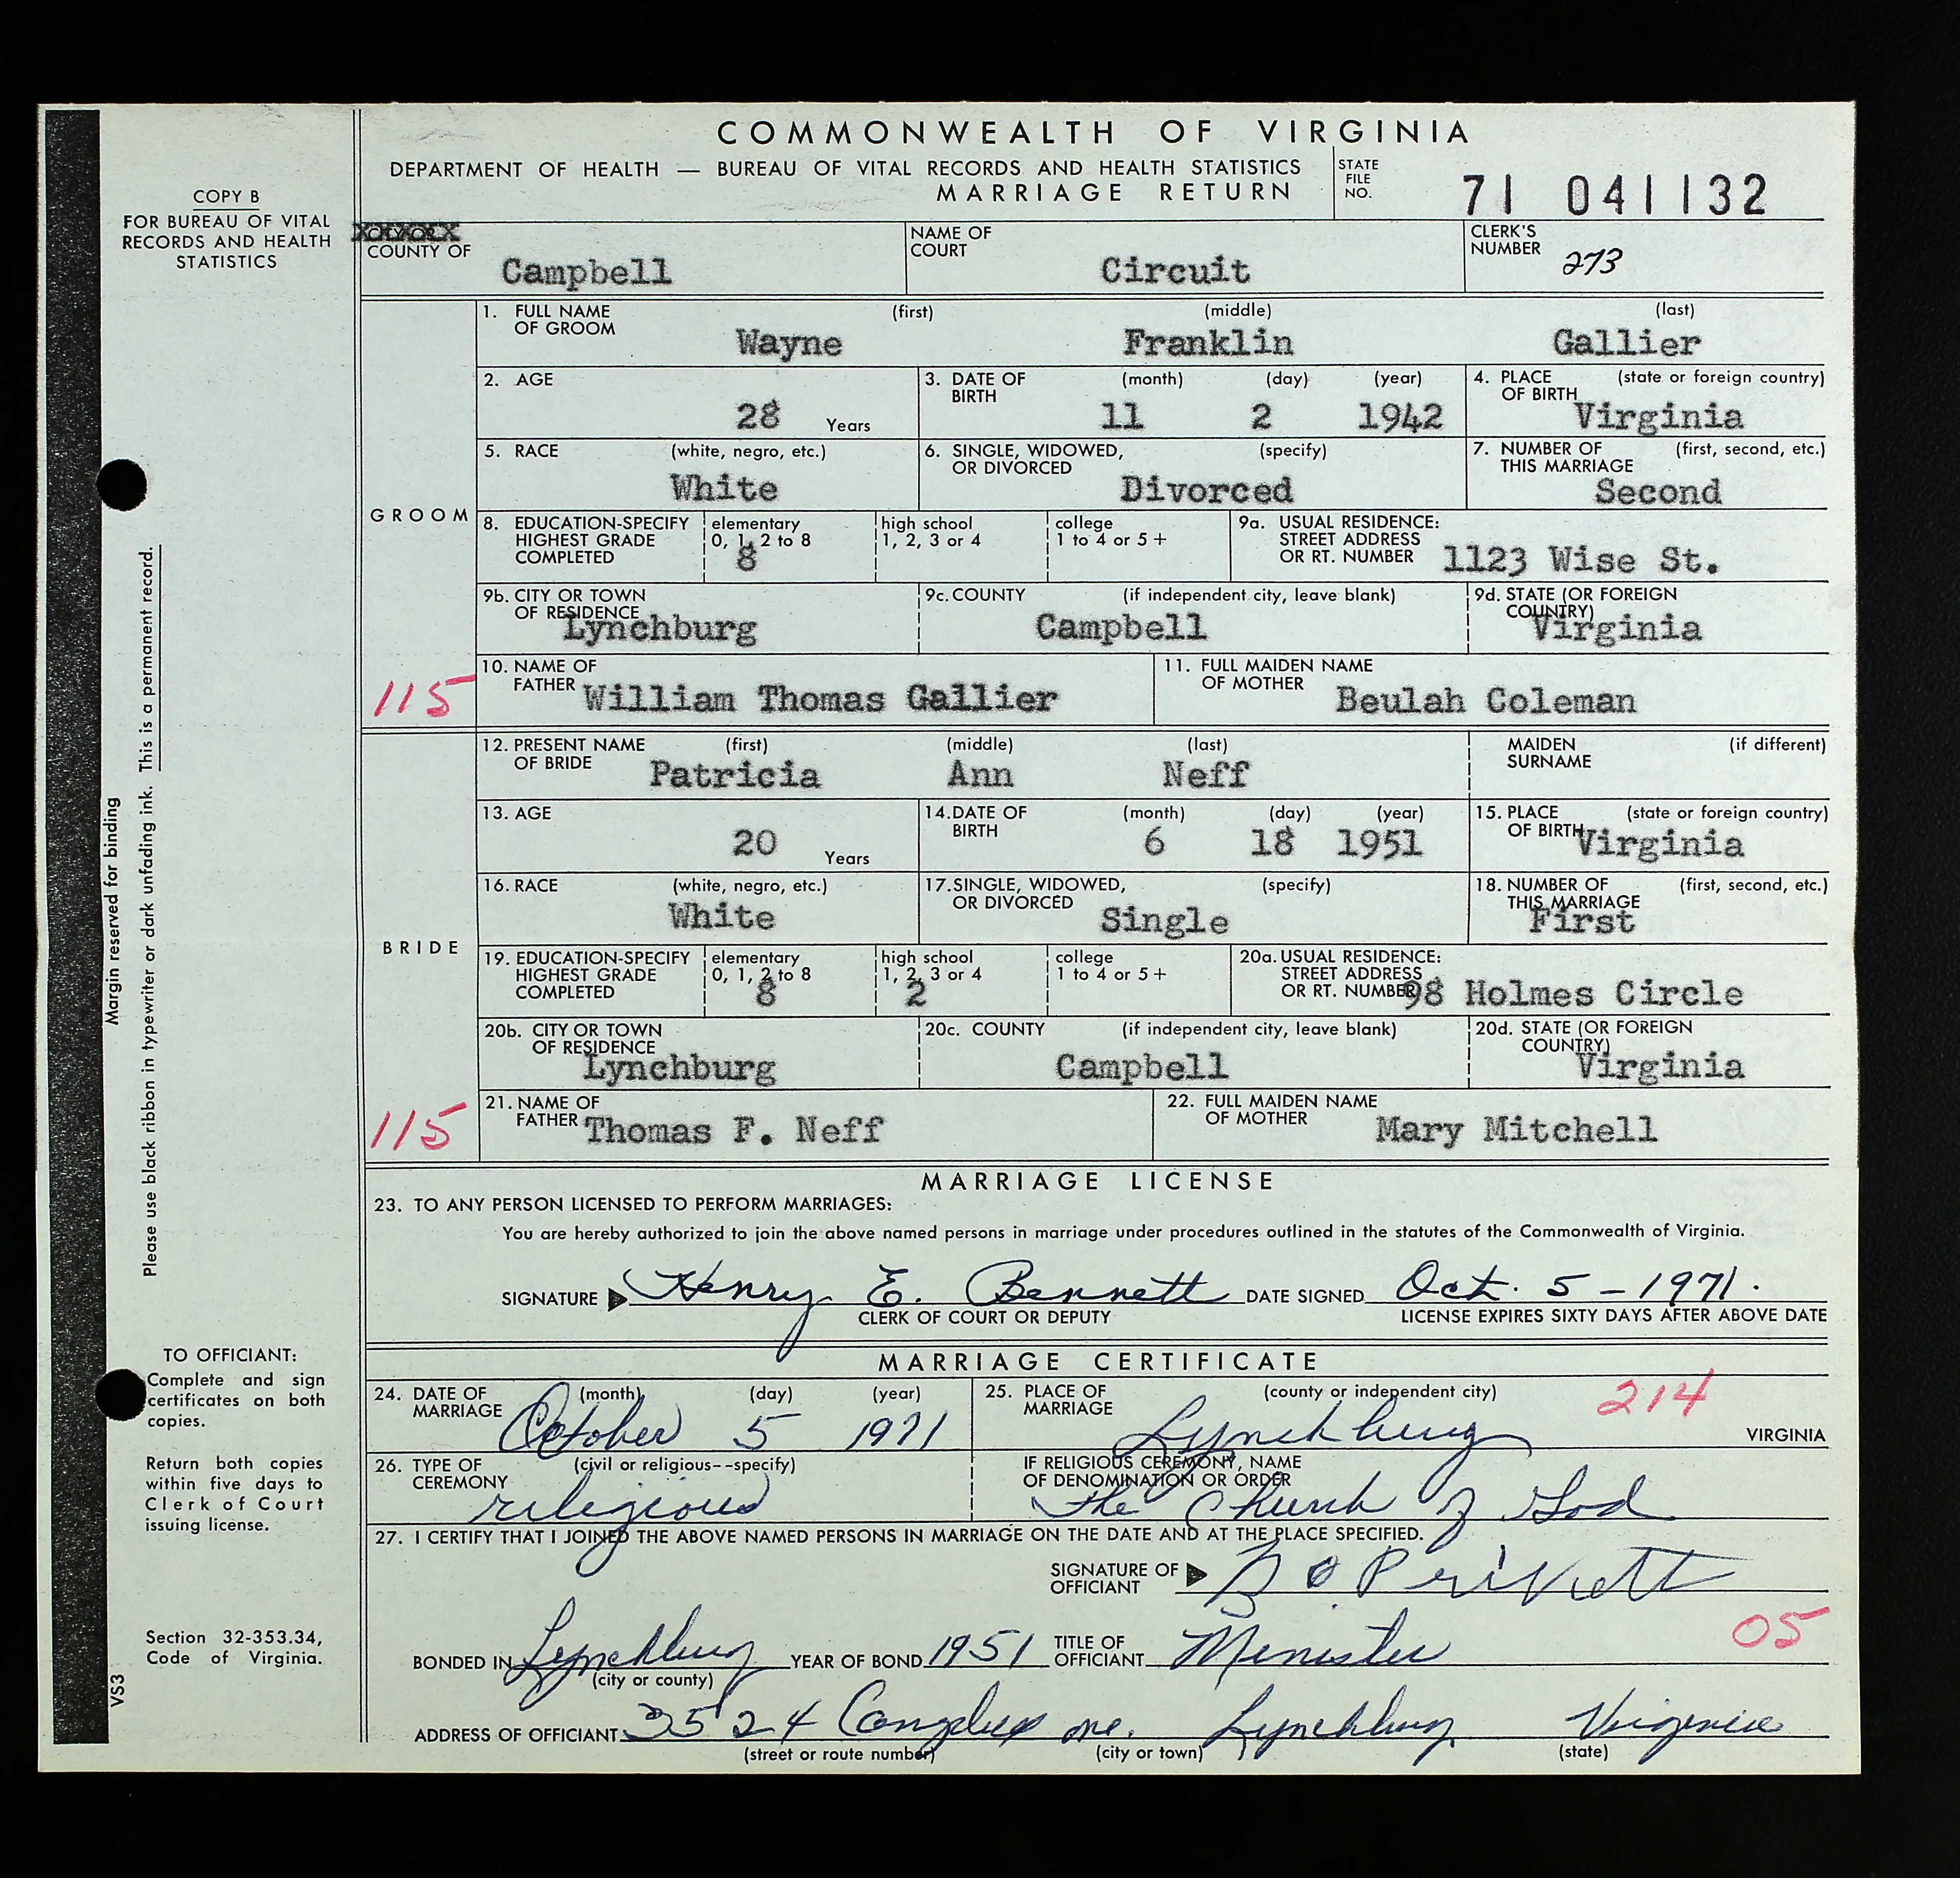 COMMONWEALTH OF VIRGINIA
DEPARTMENT OF HEALTH — BUREAU OF VITAL RECORDS AND HEALTH STATISTICS
MARRIAGE RETURN
STATE FILE NO. 71 041132
COPY B
FOR BUREAU OF VITAL
RECORDS AND HEALTH
STATISTICS
COUNTY OF Campbell
NAME OF COURT Circuit
CLERK'S NUMBER 273
GROOM
1. FULL NAME OF GROOM (first) (middle) (last)
Wayne Franklin Gallier
2. AGE 28 Years
3. DATE OF BIRTH (month) (day) (year) 11 2 1942
4. PLACE OF BIRTH (state or foreign country) Virginia
5. RACE (white, negro, etc.) White
6. SINGLE, WIDOWED, OR DIVORCED (specify) Divorced
7. NUMBER OF THIS MARRIAGE (first, second, etc.) Second
8. EDUCATION-SPECIFY HIGHEST GRADE COMPLETED elementary 0, 1, 2 to 8 8 high school 1, 2, 3 or 4 college 1 to 4 or 5+
9a. USUAL RESIDENCE: STREET ADDRESS OR RT. NUMBER 1123 Wise St.
9b. CITY OR TOWN OF RESIDENCE Lynchburg
9c. COUNTY (if independent city, leave blank) Campbell
9d. STATE (OR FOREIGN COUNTRY) Virginia
115
10. NAME OF FATHER William Thomas Gallier
11. FULL MAIDEN NAME OF MOTHER Beulah Coleman
BRIDE
12. PRESENT NAME OF BRIDE (first) (middle) (last) Patricia Ann Neff
MAIDEN SURNAME (if different)
13. AGE 20 Years
14. DATE OF BIRTH (month) (day) (year) 6 18 1951
15. PLACE OF BIRTH (state or foreign country) Virginia
16. RACE (white, negro, etc.) White
17. SINGLE, WIDOWED, OR DIVORCED (specify) Single
18. NUMBER OF THIS MARRIAGE (first, second, etc.) First
19. EDUCATION-SPECIFY HIGHEST GRADE COMPLETED elementary 0, 1, 2 to 8 8 high school 1, 2, 3 or 4 2 college 1 to 4 or 5+
20a. USUAL RESIDENCE: STREET ADDRESS OR RT. NUMBER 98 Holmes Circle
20b. CITY OR TOWN OF RESIDENCE Lynchburg
20c. COUNTY (if independent city, leave blank) Campbell
20d. STATE (OR FOREIGN COUNTRY) Virginia
115
21. NAME OF FATHER Thomas F. Neff
22. FULL MAIDEN NAME OF MOTHER Mary Mitchell
MARRIAGE LICENSE
23. TO ANY PERSON LICENSED TO PERFORM MARRIAGES:
You are hereby authorized to join the above named persons in marriage under procedures outlined in the statutes of the Commonwealth of Virginia.
SIGNATURE Henry E. Bennett DATE SIGNED Oct. 5 - 1971.
CLERK OF COURT OR DEPUTY LICENSE EXPIRES SIXTY DAYS AFTER ABOVE DATE
MARRIAGE CERTIFICATE
24. DATE OF MARRIAGE (month) (day) (year) October 5 1971
25. PLACE OF MARRIAGE (county or independent city) Lynchburg 214 VIRGINIA
26. TYPE OF CEREMONY (civil or religious--specify) religious
IF RELIGIOUS CEREMONY, NAME OF DENOMINATION OR ORDER the Church of God
27. I CERTIFY THAT I JOINED THE ABOVE NAMED PERSONS IN MARRIAGE ON THE DATE AND AT THE PLACE SPECIFIED.
SIGNATURE OF OFFICIANT
05
BONDED IN Lynchburg YEAR OF BOND 1951 TITLE OF OFFICIANT Minister
(city or county)
ADDRESS OF OFFICIANT 3524 Lynchburg Virginia
(street or route number) (city or town) (state)
Margin reserved for binding
Please use black ribbon in typewriter or dark unfading ink. This is a permanent record.
TO OFFICIANT:
Complete and sign
certificates on both
copies.
Return both copies
within five days to
Clerk of Court
issuing license.
Section 32-353.34,
Code of Virginia.
VS3